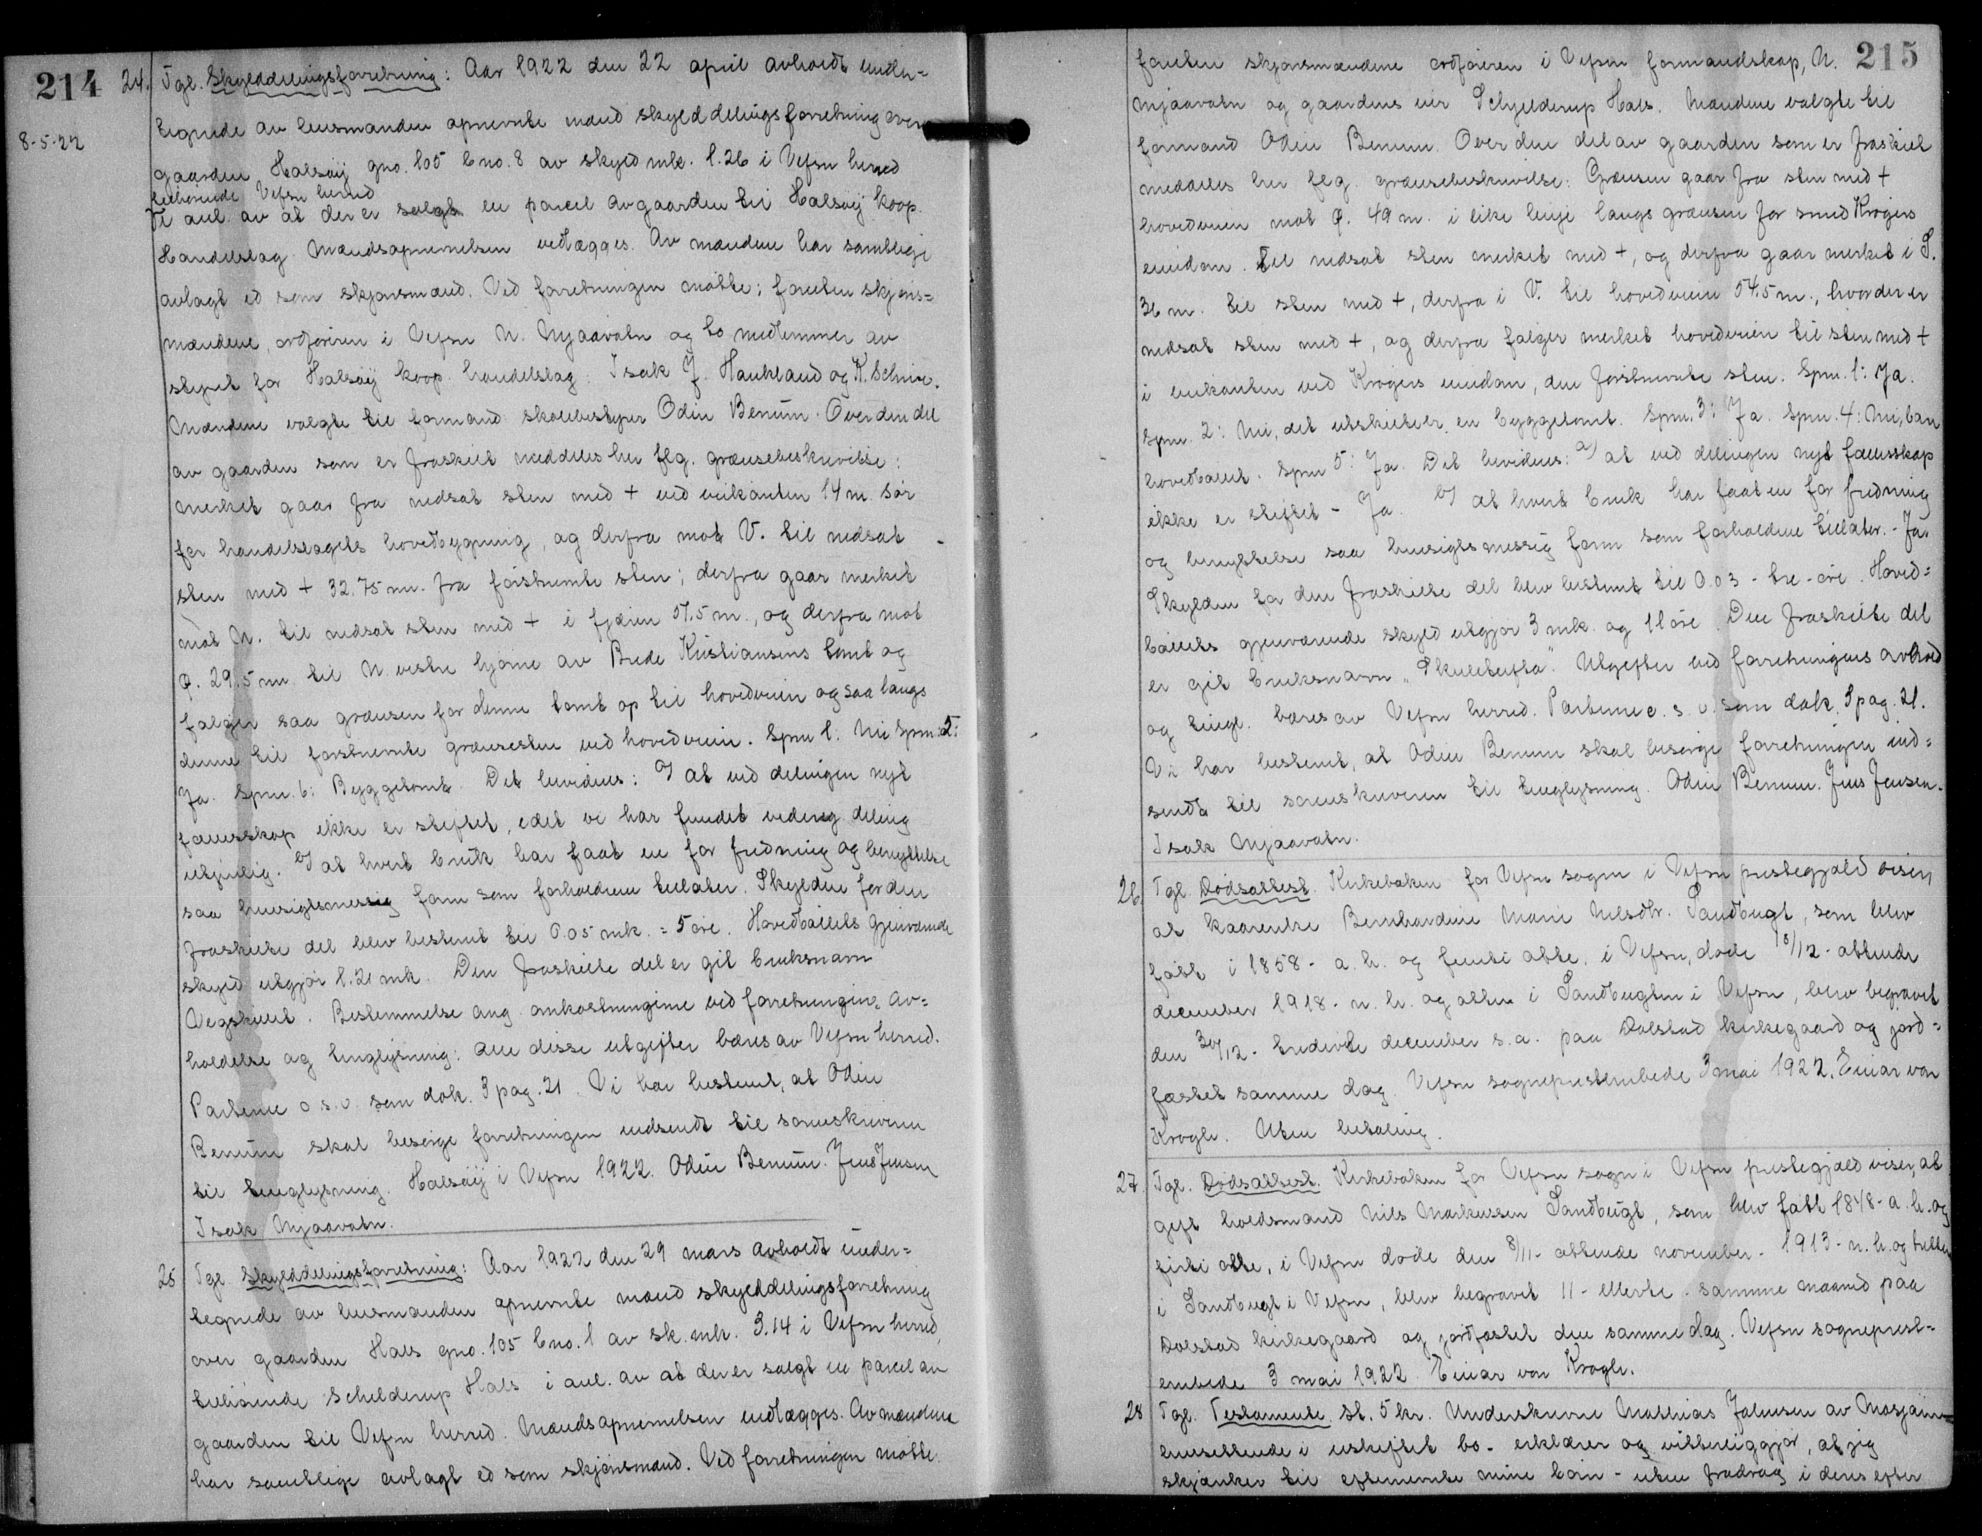 214
8-5-22
24. Tgl. Skylddelingsforretning: Aar 1922 den 22 april avholdt under=
tegnede av lensmanden opnevnte mænd skylddelingsforretning over
gaarden Halsøy gno. 105 bno. 8 av skyld mk. 1.26 i Vefsn herred
tilhørende Vefsn herred
i anl. av at der er solgt en parcel av gaarden til Halsøy koop.
Handelslag. Mændsopnevnelsen vedlægges. Av mændene har samtlige
avlagt ed som skjønsmænd. Ved forretningen møtte: foruten skjøns=
mændene, ordføreren i Vefsn N. Njaavatn og to medlemmer av
styret for Halsøy koop. handelslag: Isak J. Haukland og K.
Mændene valgte til formand skolebestyrer Odin Benum. Over den del
av gaarden som er fraskilt meddeles her flg. grænsebeskrivelse:
merket gaar fra nedsat sten med + ved veikanten 14 m. sør
for handelslagets hovedbygning, og derfra mot V. til nedsat
sten med + 32.75 m. fra førstnevnte sten; derfra gaar merket
mot N. til nedsat sten med + i fjæren 57.5 m., og derfra mot
Ø. 29.5 m. til N. vestre hjørne av Brede Kristiansens tomt og
følger saa grænsen for denne tomt op til hovedveien og saa langs
denne til førstnevnte grænsesten ved hovedveien. Spm 1. Nei Spm. 5:
Ja. Spm. 6: Byggetomt. Det bevidnes: a) at ved delingen nyt
fællesskap ikke er stiftet, idet vi har fundet deling
utjenlig. b) at hvert bruk har faat en for fredning og benyttelse
saa hensigtsmessig form som forholdene tillater. Skylden for den
fraskilte del blev bestemt til 0.05 mk. = 5 øre. Hovedbølets gjenværende
skyld utgjør 1.21 mk. Den fraskilte del er git bruksnavn
Vegskillet. Bestemmelse ang. omkostningerne ved forretningens av=
holdelse og tinglysning: alle disse utgifter bæres av Vefsn herred.
Parterne o.s.v. som dok. 3 pag. 21. Vi har bestemt, at Odin
Benum skal besørge forretningen indsendt til sorenskriveren
til tinglysning. Halsøy i Vefsn 1922. Odin Benum. Jens Jensen
Isak Njaavatn.
25 Tgl. Skylddelingsforretning: Aar 1922 den 29 mars avholdt under=
tegnede av lensmanden opnevnte mænd skylddelingsforretning
over gaarden Hals gno. 105 bno. 1 av sk. mk. 3.14 i Vefsn herred,
tilhørende Schelderup Hals i anl. av at der er solgt en parcel av
gaarden til Vefsn herred. Mændsopnevnelsen vedlægges. Av mændene
har samtlige avlagt ed som skjønsmænd. Ved forretningen møtte:
215
foruten skjønsmændene ordføreren i Vefsn formandskap, N.
Njaavatn og gaardens eier Schjelderup Hals. Mændene valgte til
formand Odin Benum. Over den del av gaarden som er fraskilt
meddeles her flg. grænsebeskrivelse: Grænsen gaar fra sten med +
hovedveien mot Ø. 49 m. i like linje langs grænsen for smed Krogers
eiendom. Til nedsat sten merket med +, og derfra gaar merket i S.
36 m. til sten med +, derfra i V. til hovedveien 54.5 m., hvor der er
nedsat sten med +, og derfra følger merket hovedveien til sten med +
i veikanten ved Krogers eiendom, den førstnevnte sten. Spm. 1: Ja.
Spm. 2: Nei, det utskilte er en byggetomt. Spm. 3: Ja. Spm. 4: Nei, bare
hovedbølet. Spm 5: Ja. Det bevidnes: a) at ved delingen nyt fællesskap
ikke er stiftet - Ja. b) at hvert bruk har faat en for fredning
og benyttelse saa hensigtsmessig form som forholdene tillater. - Ja.
Skylden for den fraskilte del blev bestemt til 0.03 - tre - øre. Hoved=
bølets gjenværende skyld utgjør 3 mk. og 11 øre. Den fraskilte del
er git bruksnavn "Skuletufta". Utgifter ved forretningens avhold
og tingl. bæres av Vefsn herred. Parterne o. s. v. som dok. 3 pag. 21.
Vi har bestemt, at Odin Benum skal besørge forretningen ind=
sendt til sorenskriveren til tinglysning. Odin Benum. Jens Jensen.
Isak Njaavatn.
26 Tgl. Dødsattest. Kirkeboken for Vefsn sogn i Vefsn prestegjæld viser,
at kaarenke Bernhardine Marie Nilsdtr. Sandbugt, som blev
født i 1858 - a. h. og femti otte, i Vefsn, døde 18/12 - attende
december 1918 - n. h. og atten i Sandbugten i Vefsn, blev begravet
den 30/12 - tredivte december s. a. paa Dolstad kirkegaard og jord=
fæstet samme dag. Vefsn sogneprestembede 3 mai 1922. Einar von
Krogh. Uten betaling.
27 Tgl. Dødsattest. Kirkeboken for Vefsn sogn i Vefsn prestegjæld viser, at
gift holdsmand Nils Markussen Sandbugt, som blev født 1848 - a. h. og
førti otte, i Vefsn døde den 8/11 - ottende november - 1913 - n. h. og tretten
i Sandbugt i Vefsn, blev begravet 11 - ellevte - samme maaned paa
Dolstad kirkegaard og jordfæstet den samme dag. Vefsn sogneprest=
embede 3 mai 1922. Einar von Krogh.
28 Tgl. Testamente st. 5 kr. Underskrevne Mathias Johnsen av Mosjøen -
hensittende i uskiftet bo - erklærer og vitterliggjør, at jeg
skjænker til efternevnte mine børn - uten fradrag i deres efter